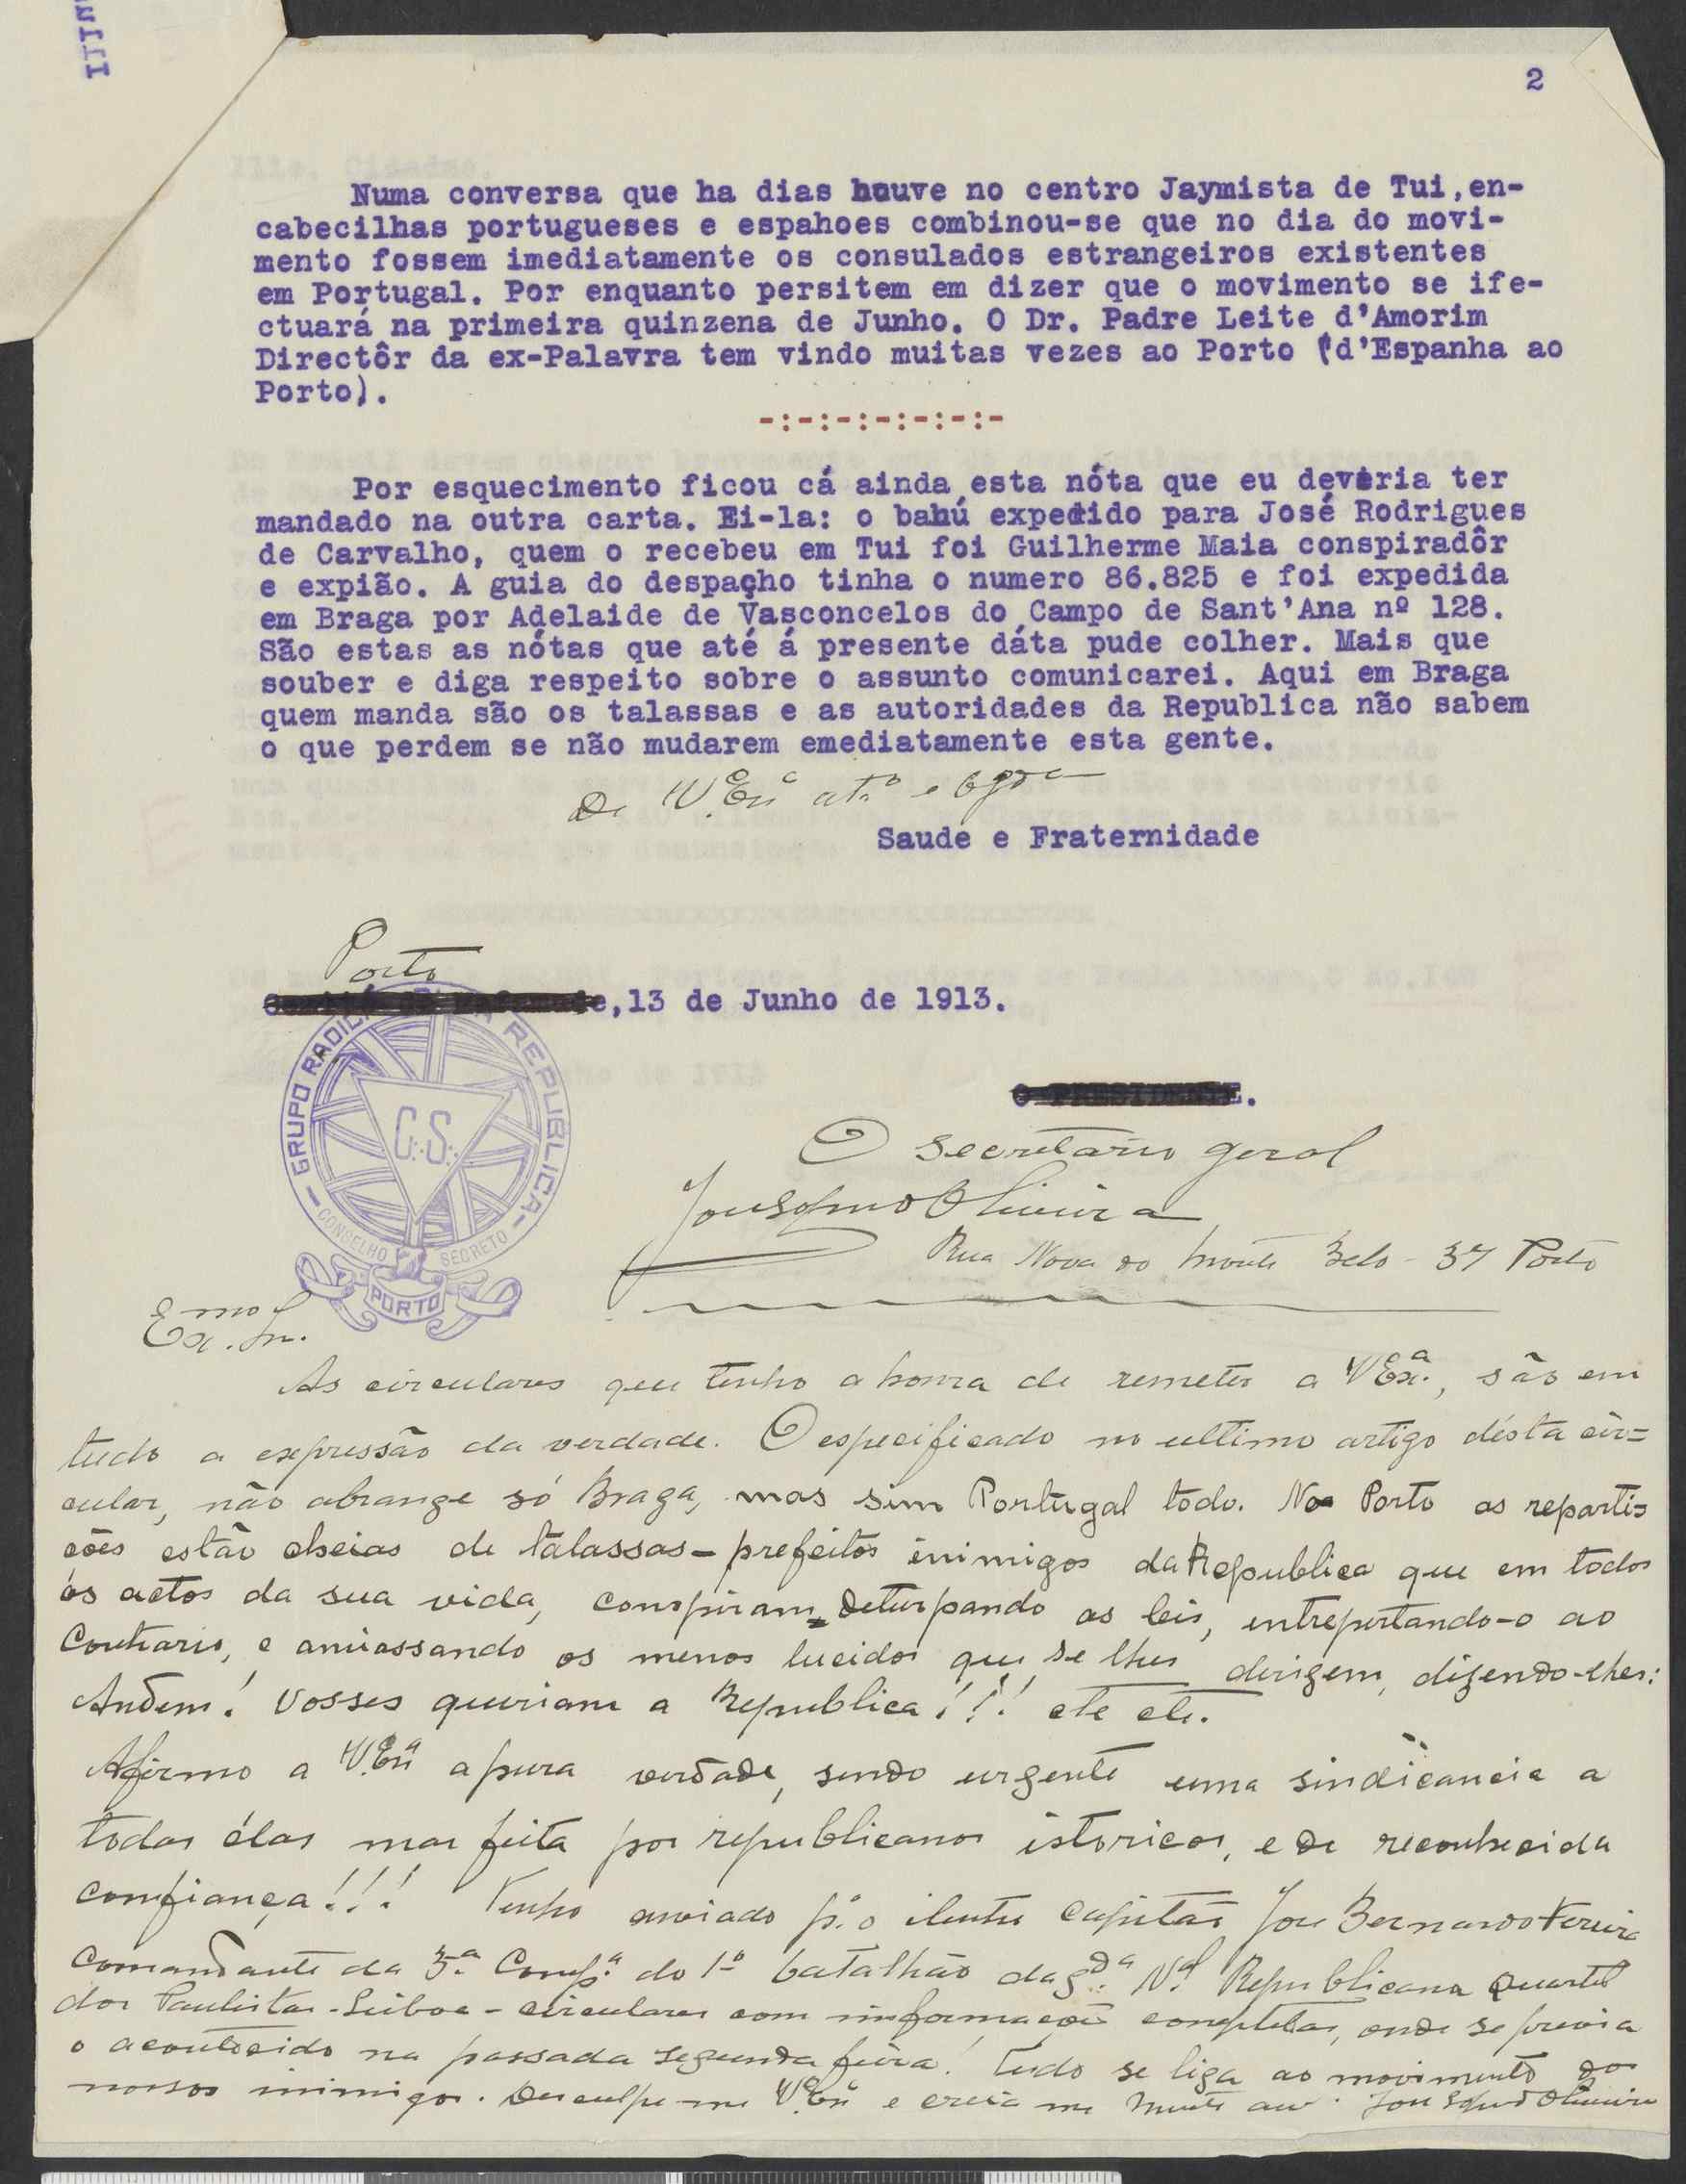 2
Numa conversa que ha dias houve no centro Jaymista de Tui,en-
cabecilhas portugueses e espahoes combinou-se que no dia do movi-
mento fossem imediatamente os consulados estrangeiros existentes
em Portugal. Por enquanto persitem em dizer que o movimento se ife-
ctuará na primeira quinzena de Junho. O Dr. Padre Leite d'Amorim
Directôr da ex-Palavra tem vindo muitas vezes ao Porto (d'Espanha ao
Porto).
-:-:-:-:-:-:-
Por esquecimento ficou cá ainda esta nóta que eu deveria ter
mandado na outra carta. Ei-la: o bahú expedido para José Rodrigues
de Carvalho, quem o recebeu em Tui foi Guilherme Maia conspiradôr
e expião. A guia do despacho tinha o numero 86.825 e foi expedida
em Braga por Adelaide de Vasconcelos do Campo de Sant'Ana nº 128.
São estas as nótas que até á presente dáta pude colher. Mais que
souber e diga respeito sobre o assunto comunicarei. Aqui em Braga
quem manda são os talassas e as autoridades da Republica não sabem
o que perdem se não mudarem emediatamente esta gente.
De V. Exª atº e
Saude e Fraternidade
Porto
,13 de Junho de 1913.
GRUPO REPUBLICA
C.S.
CONSELHO SECRETO
PORTO
O PRESIDENTE.
O secretario geral
Oliveira
Rua Nova do Monte Belo - 37 Porto
Exmo Sr.
As circulares que tenho a honra de remeter a V Exª, são em
tudo a expressão da verdade. O especificado no ultimo artigo désta cir=
cular, não abrange só Braga, mas sim Portugal todo. No Porto as reparti=
cões estão cheias de talassas - prefeitos inimigos da Republica que em todos
os actos da sua vida, conspiram = deturpando as leis, entrepertando-o ao
Contrario, e amiassando os menos lucidos que se lhes dirigem, dizendo-lhes:
Andem! Vosses queriam a Republica!!! etc etc.
Afirmo a V. Exª a pura verdade, sendo urgente uma sindicancia a
todas élas mas feita por republicanos istoricos, e de reconhecida
confiança!!! Tenho enviado pº o ilustre capitão José Bernardo Ferreira
Comandante da 3ª Compª do 1º batalhão da gdª Nal Republicana Quartel
dos Paulistas - Lisboa - circulares com informações completas, onde se previa
o acontecido na passada segunda feira! Tudo se liga ao movimento dos
nossos inimigos. Desculpe-me V. Exª e creia me Oliveira